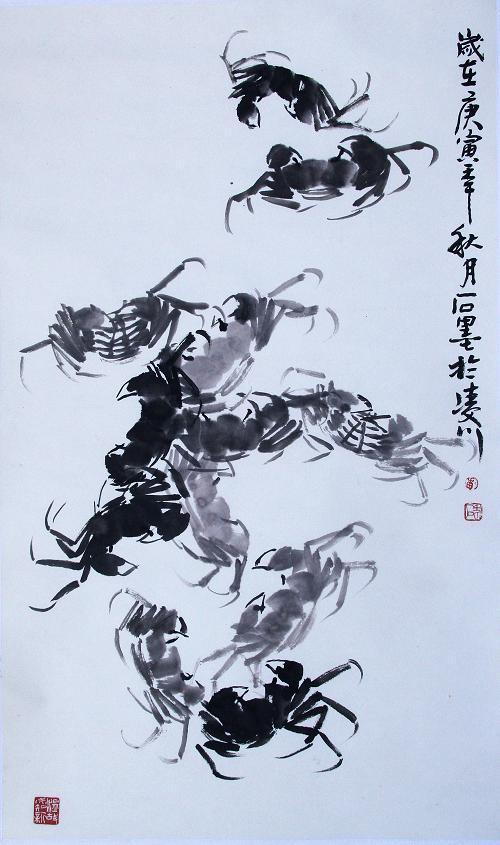 歲在庚寅年秋月石墨於凌川